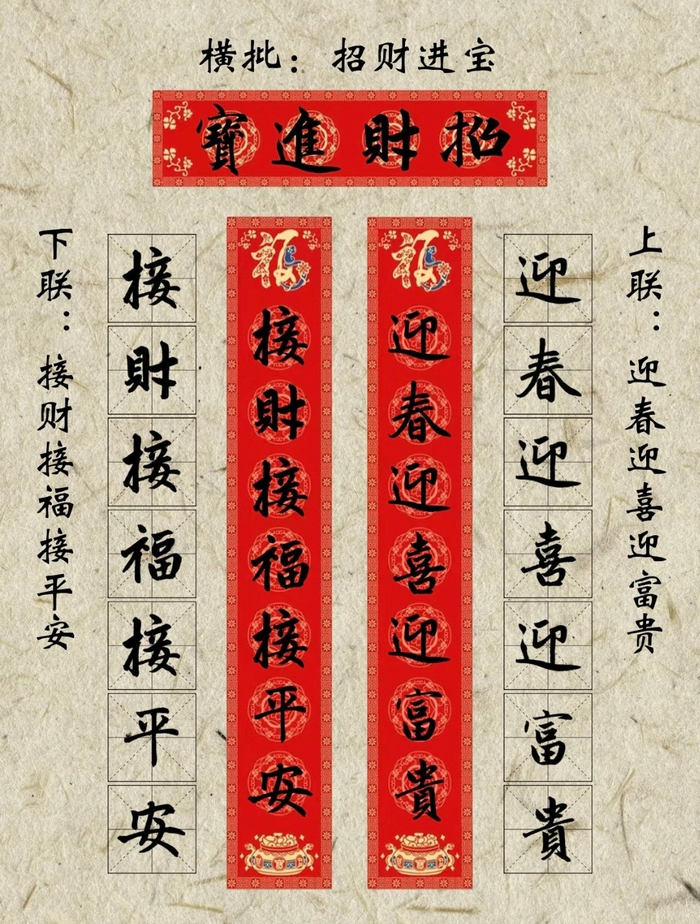 横批：招财进宝
招財進寶
上联：迎春迎喜迎富贵
迎春迎喜迎富貴
福迎春迎喜迎富貴
福接財接福接平安
接財接福接平安
下联：接财接福接平安